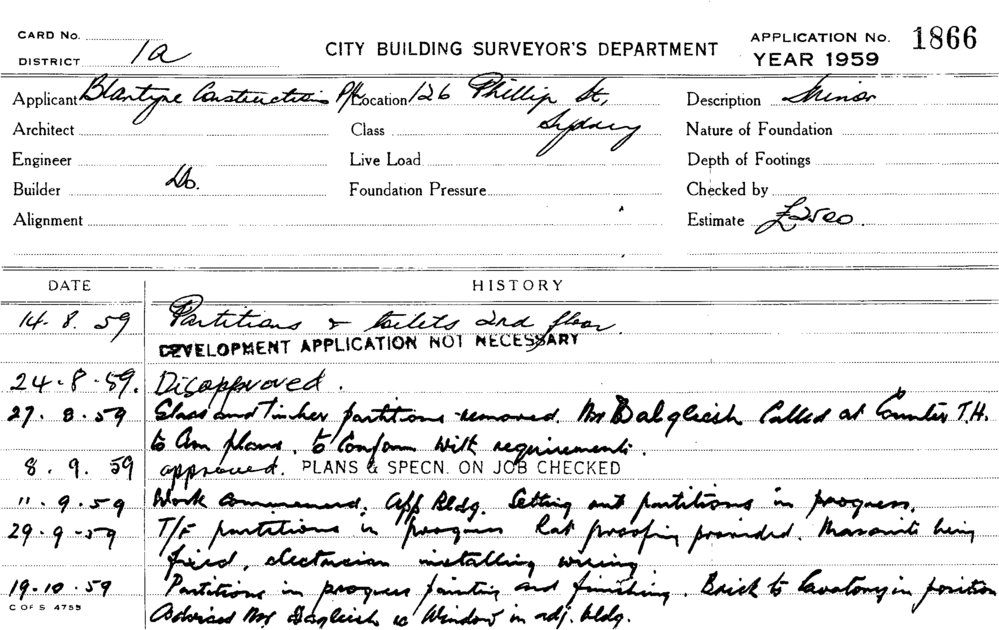 CARD No.
DISTRICT 1a
CITY BUILDING SURVEYOR'S DEPARTMENT
APPLICATION No. 1866
YEAR 1959
Applicant Blantyre Constructions P/L Location 126 Phillip St, Description Minor
Architect Class Sydney Nature of Foundation
Engineer Live Load Depth of Footings
Builder Do. Foundation Pressure Checked by
Alignment Estimate £2500
DATE HISTORY
14. 8. 59 Partitions & toilets 2nd floor.
DEVELOPMENT APPLICATION NOT NECESSARY
24-8-59. Disapproved.
27. 8. 59 Glass and Timber partitions removed. Mr Dalgleish Called at Counter T.H.
to Am plans. to Conform With requirements.
8. 9. 59 approved. PLANS & SPECN. ON JOB CHECKED
11. 9. 59 Work commenced, Off Bldg. Setting out partitions in progress.
29-9-59 T/F partitions in progress Rat proofing provided. Masonite being
fixed, electrician installing wiring
19.10.59 Partitions in progress painting and finishing. Brick to lavatory in position
C OF S 4755
Advised Mr Dagleish re Window in adj. bldg.